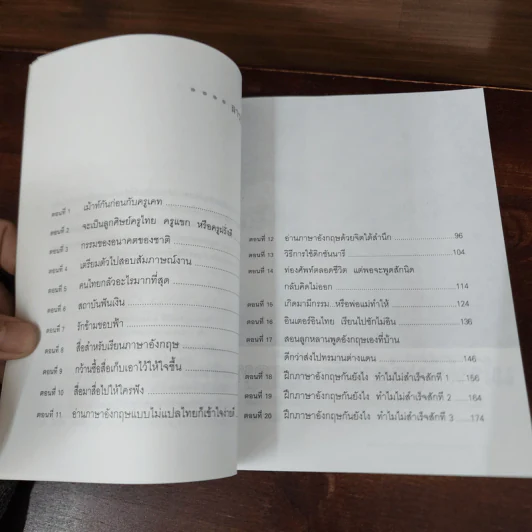 ตอนที่ 1 เม้าท์กันก่อนกับครูเคท
ตอนที่ 2 จะเป็นลูกศิษย์ครูไทย ครูแขก หรือครูฝรั่งดี
ตอนที่ 3 กรรมของอนาคตของชาติ
ตอนที่ 4 เตรียมตัวไปสอบสัมภาษณ์งาน
ตอนที่ 5 คนไทยกลัวอะไรมากที่สุด
ตอนที่ 6 สถาบันฟันเงิน
ตอนที่ 7 รักข้ามขอบฟ้า
ตอนที่ 8 สื่อสำหรับเรียนภาษาอังกฤษ
ตอนที่ 9 กว้านซื้อสื่อเก็บเอาไว้ให้ใจชื้น
ตอนที่ 10 สื่อมาสื่อไปให้ใครฟัง
ตอนที่ 11. อ่านภาษาอังกฤษแบบไม่แปลไทยก็เข้าใจง่าย
ตอนที่ 12 อ่านภาษาอังกฤษด้วยจิตใต้สำนึก 96
ตอนที่ 13 วิธีการใช้ดิกชันนารี 104
ตอนที่ 14 ท่องศัพท์ตลอดชีวิต แต่พอจะพูดสักนิด
กลับคิดไม่ออก 114
ตอนที่ 15 เกิดมามีกรรม..หรือพ่อแม่ทำให้ 124
ตอนที่ 16 อินเตอร์อินไทย เรียนไปซักไม่อิน 136
ตอนที่ 17 สอนลูกหลานพูดภาษาอังกฤษเองที่บ้าน
ดีกว่าส่งไปทรมานต่างแดน 146
ตอนที่ 18 ฝึกภาษาอังกฤษกันยังไง ทำไมไม่สำเร็จสักที 1 156
ตอนที่ 19 ฝึกภาษาอังกฤษกันยังไง ทำไมไม่สำเร็จสักที 2 164
ตอนที่ 20 ฝึกภาษาอังกฤษกันยังไง ทำไมไม่สำเร็จสักที 3 174